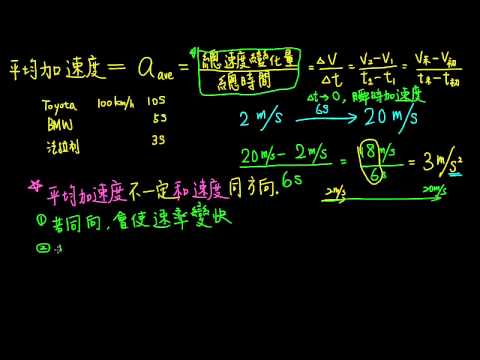 平均加速度 = a ave = 總速度變化量 / 總時間 = ΔV / Δt = V2-V1 / t2-t1 = V末-V初 / t末-t初
Δt→0, 瞬時加速度
Toyota 100km/h 10S
BMW 5S
法拉利 3S
2 m/s 6S → 20 m/s
20 m/s - 2 m/s / 6s = 18 m/s / 6s = 3 m/s²
2m/s 20m/s
平均加速度不一定和速度同方向.
① 若同向, 會使速率變快
②